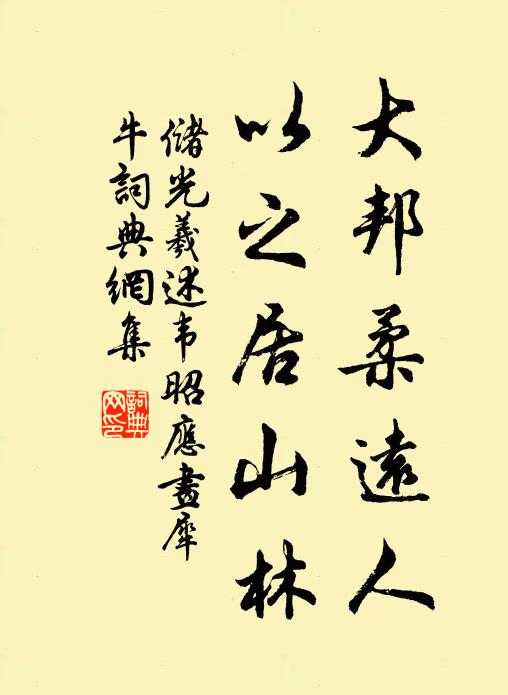 大邦柔遠人
以之居山林
儲光羲述韦昭應畫犀
牛詞典網集
詞典
网印